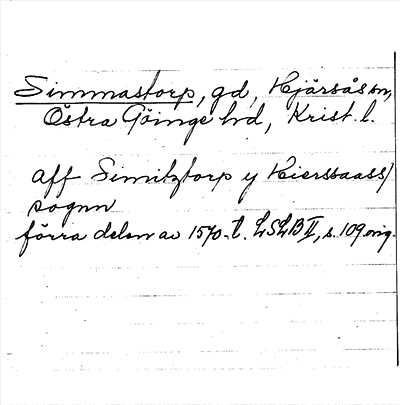 Simmastorp, gd, Hjärsås sn,
Östra Göinge hd, Krist. l.
aff Simitztorp y Hierssaass
sognn
förra delen av 1570-t. LSLB II, s. 109 orig.